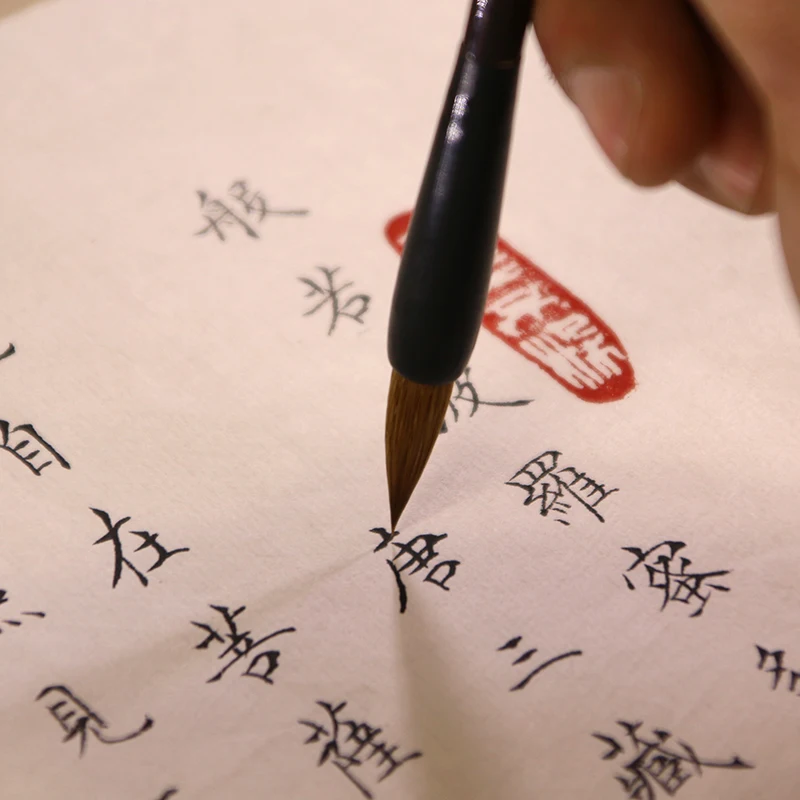 般若波羅蜜多
唐三藏
自在菩薩
見